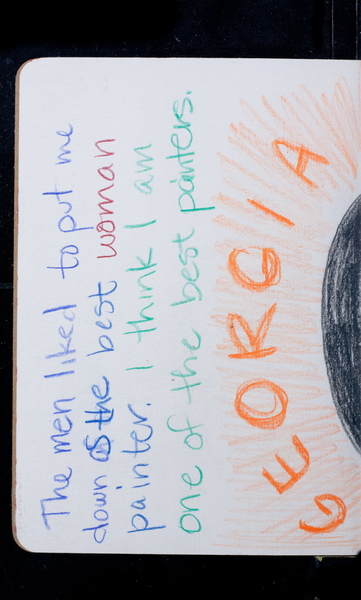 The men liked to put me
down as the best woman
painter. I think I am
one of the best painters.
GEORGIA